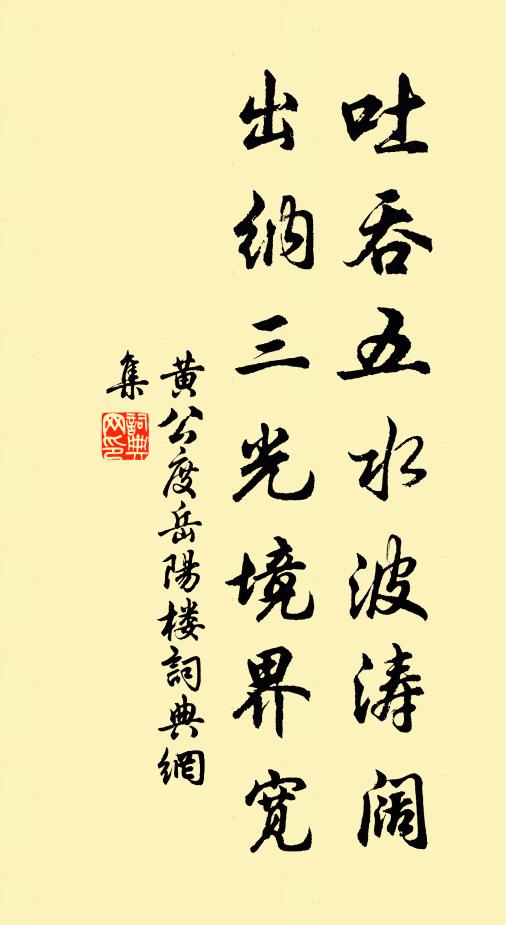 吐吞五水波涛阔
出纳三光境界宽
黄公度岳陽楼詞典網
集
詞典
网印